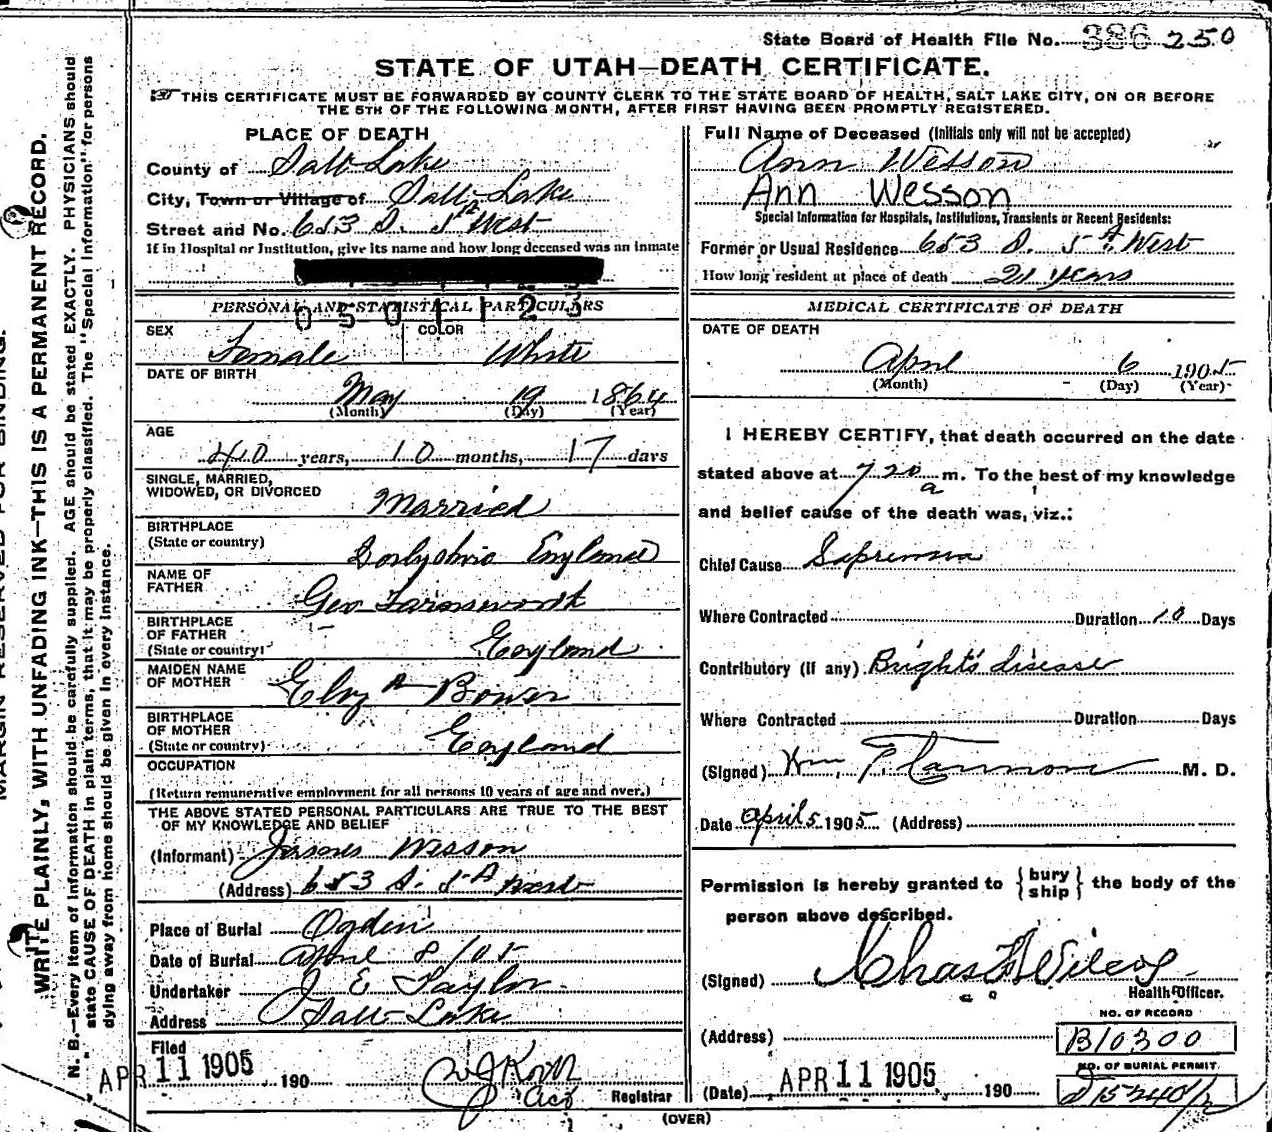 State Board of Health File No. 386 250
STATE OF UTAH—DEATH CERTIFICATE.
THIS CERTIFICATE MUST BE FORWARDED BY COUNTY CLERK TO THE STATE BOARD OF HEALTH, SALT LAKE CITY, ON OR BEFORE
THE 5TH OF THE FOLLOWING MONTH, AFTER FIRST HAVING BEEN PROMPTLY REGISTERED.
PLACE OF DEATH
County of Salt Lake
City, Town or Village of Salt Lake
Street and No. 653 S. 5th West
If in Hospital or Institution, give its name and how long deceased was an inmate
0501123
PERSONAL AND STATISTICAL PARTICULARS
SEX Female
COLOR White
DATE OF BIRTH
May 19 1864
(Month) (Day) (Year)
AGE
40 years, 10 months, 17 days
SINGLE, MARRIED,
WIDOWED, OR DIVORCED Married
BIRTHPLACE
(State or country) Derbyshire England
NAME OF
FATHER Geo Farnsworth
BIRTHPLACE
OF FATHER
(State or country) England
MAIDEN NAME
OF MOTHER A Bower
BIRTHPLACE
OF MOTHER
(State or country) England
OCCUPATION
(Return remunerative employment for all persons 10 years of age and over.)
THE ABOVE STATED PERSONAL PARTICULARS ARE TRUE TO THE BEST
OF MY KNOWLEDGE AND BELIEF
(Informant) James Wesson
(Address) 653 S. 5th West
Place of Burial Ogden
Date of Burial April 8/05
Undertaker J E Taylor
Address Salt Lake
Filed
APR 11 1905, 190
Registrar
(OVER)
Full Name of Deceased (Initials only will not be accepted)
Ann Wesson
Ann Wesson
Special Information for Hospitals, Institutions, Transients or Recent Residents:
Former or Usual Residence 653 S. 5th West
How long resident at place of death 21 years
MEDICAL CERTIFICATE OF DEATH
DATE OF DEATH
April 6 1905
(Month) (Day) (Year)
I HEREBY CERTIFY, that death occurred on the date
stated above at 7 20 a m. To the best of my knowledge
and belief cause of the death was, viz.:
Chief Cause
Where Contracted Duration 10 Days
Contributory (if any) Bright's disease
Where Contracted Duration Days
(Signed) M. D.
Date April 5 1905 (Address)
Permission is hereby granted to { bury ship } the body of the
person above described.
(Signed) Chas Wilcox
Health Officer.
NO. OF RECORD
(Address) B10300
NO. OF BURIAL PERMIT.
(Date) APR 11 1905 190
MARGIN RESERVED FOR BINDING.
WRITE PLAINLY, WITH UNFADING INK—THIS IS A PERMANENT RECORD.
N. B.—Every item of information should be carefully supplied. AGE should be stated EXACTLY. PHYSICIANS should
state CAUSE OF DEATH in plain terms, that it may be properly classified. The "Special Information" for persons
dying away from home should be given in every instance.